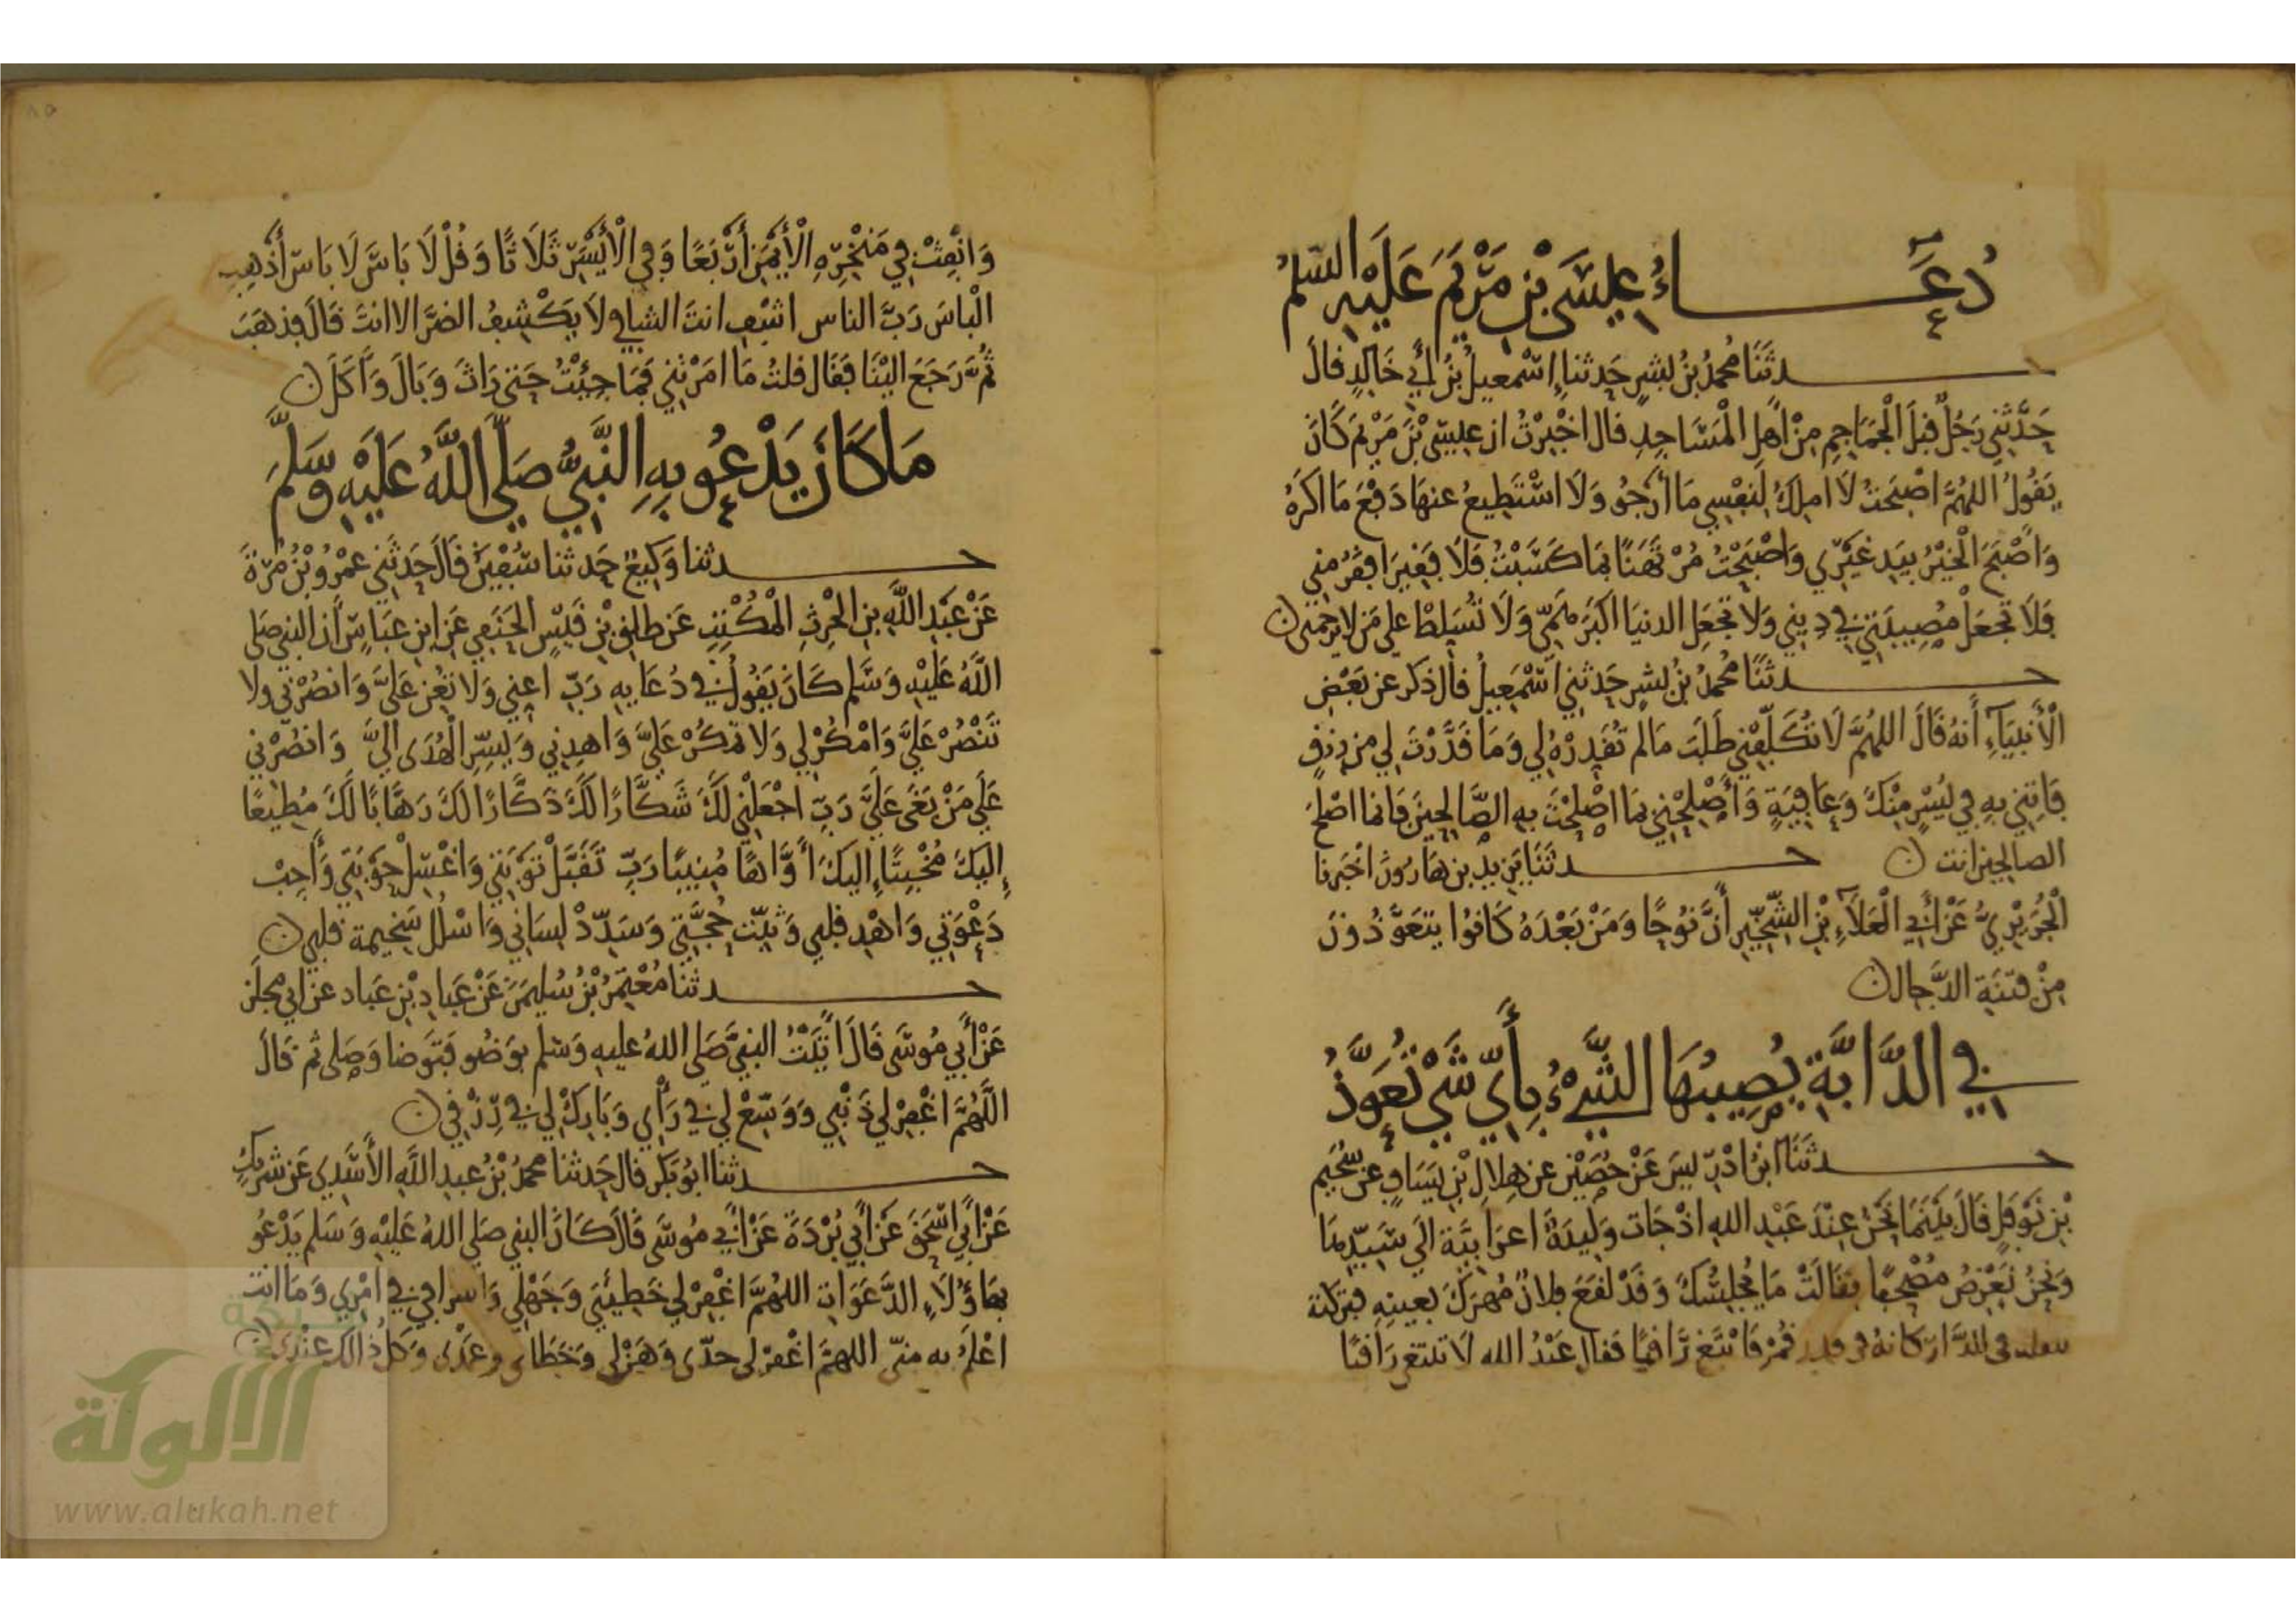 دُعَاءُ عِيسَى بْنِ مَرْيَمَ عَلَيْهِ السلمُ
حدثَنَا مُحمدُ بْنُ بِشرٍ حَدثنا إسْمعيلُ بْنُ أَبِي خَالِدٍ قالَ
حَدَّثَنِي رَجُلٌ قبلَ الْجَمَاجِمِ مِنْ أَهْلِ الْمَسَاجِدِ قال اخْبِرْتُ ان عِيسَى بْنَ مَرْيَمَ كَانَ
يَقُولُ اللهُمَّ اصْبَحتُ لَا املِكُ لِنَفْسِي مَا أَرْجُو وَلَا اسْتَطِيعُ عنهَا دَفْعَ مَا اكْرَهُ
وَأَصْبَحَ الْخَيْرُ بِيَدِ غَيْرِي وَاصْبَحْتُ مُرْتَهَنًا بِمَا كَسَبْتُ فَلَا فَقِيرَ افقرُ مِني
فَلَا تَجْعَلْ مُصِيبَتِي فِي دِينِي وَلَا تجْعَلِ الدنيَا اكبَرَ هَمِّي وَلَا تُسَلِطْ عَلَي مَنْ لا يَرحمني ن
حدثنَا مُحمدُ بْنُ بشرٍ حَدثنِي اسْمَعِيلُ قال ذكر عن بَعْضِ
الْأَنْبِيَآءِ أَنهُ قَالَ اللهُمَّ لَا تُكَلِّفْنِي طَلَبَ مَا لم تُقَدِرْهُ لِي وَمَا قَدَّرْتَ لِي مِن رِزقٍ
فَاتِنِي بِهِ فِي يُسْرٍ مِنْكَ وَعَافِيَةٍ وَأَصْلِحْنِي بِمَا اصْلَحْتَ بِهِ الصَّالِحِينَ فَإنما اصْلَحَ
الصالحِينَ انت ن حدثَنَا يَزِيد بن هَارُونَ اخْبَرنا
الْجُرَيْرِيُّ عَنْ أَبِي الْعَلَآءِ بْنِ الشِّخِّيرِ أَنَّ نُوحًا وَمَنْ بَعْدَهُ كَانُوا يتَعَوَّذُونَ
مِنْ فِتنَةِ الدَّجال ن
فِي الدَّابَّةِ يُصِيبُهَا الشَّيْءُ بِأَيِّ شَيْ تُعَوَّذُ
حدثَنَا ابْنُ ادْرِيسَ عَنْ حُصَيْنٍ عن هِلالِ بْنِ يَسَافٍ عن سُحَيمِ
بْنِ نَوْفَلٍ قَالَ بَيْنَمَا نَحْنُ عِنْدَ عَبْدِ اللهِ اذْ جَات وَلِيدَةٌ اعرَابِيَّة الَي سَيِّدِهَا
وَنَحْنُ نَعْرِضُ مُصْحَفًا فقَالَتْ مَا يُجْلِسُكَ وَقَدْ لَقَعَ فلانٌ مُهرَكَ بعينِهِ فتركَهُ
في الدَّار كانهُ في قُمْ فَابْتَغِ رَاقِيًا فقال عَبْدُ الله لَا تبتغِ رَاقيًا
وَانْفِثْ فِي مَنْخِرِهِ الْأَيْمَنِ أَرْبَعًا وَفِي الْأَيْسَرِ ثَلَاثًا وَقُلْ لَا بَاسَ لَا بَاسَ أَذْهِبِ
الْبَاسَ رَبَّ الناس اشْفِ انتَ الشافِي لَا يَكْشِفُ الضرَّ الا انتَ قَالَ فذهَبَ
ثُمَّ رَجَعَ الَيْنَا فَقَال قلتُ مَا امَرْتَنِي فَمَا جِئْتُ حَتي رَاثَ وَبَالَ وَأَكَلَ ن
مَا كَانَ يَدْعُو بِهِ النَّبِيُّ صَلَّي اللَّهُ عَلَيْهِ وَسَلَّمَ
حدثنا وَكِيعٌ حَدثنا سُفْيَنُ قَالَ حَدثَنِي عَمْرُو بْنُ مُرَّةَ
عَنْ عَبْدِ اللَّهِ بنِ الْحرِثِ الْمُكْتِبِ عَن طلِقِ بْنِ قَيْسٍ الْحَنَفِي عَنِ ابنِ عَبَاسٍ أن النبي صَلي
اللَّهُ عَلَيْهِ وَسَلم كَانَ يَقُولُ فِي دُعَايِهِ رَبِّ اعِنِي وَلَا تُعِن عَلَيَّ وَانصُرْنِي وَلا
تَنْصُرْ عَلَيَّ وَامْكُرْ لِي وَلَا تَمْكُرْ عَلَيَّ وَاهدِنِي وَيَسِّرِ الْهُدَى الَيَّ وَانصُرْنِي
عَلَي مَنْ بَغَى عَلَيَّ رَبِّ اجْعَلْنِي لَكَ شَكَّارًا لَكَ ذَكَّارًا لَكَ رَهَّابًا لَكَ مُطِيعًا
إِلَيكَ مُخْبِتًا إِلَيكَ أَوَّاهًا مُنِيبًا رَبِّ تَقَبَّلْ تَوْبَتِي وَاغْسِلْ حَوْبَتِي وَأَجِبْ
دَعْوَتِي وَاهْدِ قلبِي وَثَبِّت حُجَّتِي وَسَدِّدْ لِسَانِي وَاسْلُلْ سَخِيمة قلبِي ن
حدثنا مُعْتَمِرُ بْنُ سُلَيمَنَ عَنْ عَبادِ بْنِ عَباد عن ابي مِجلَزٍ
عَنْ أَبِي مُوسَى قَالَ اتَيْتُ النبِيَّ صَلي اللهُ عليه وَسَلم بِوَضُو فَتوَضا وَصَلى ثم قَالَ
اللَّهُمَّ اغْفِرْ لِي ذَنْبِي وَوَسِّعْ لِي فِي دَارِي وَبَارِكْ لِي فِي رِزْقِي ن
حدثنا ابُو بَكرٍ قال حَدثنا محمدُ بْنُ عبدِ اللَّهِ الأَسَدِي عَن شرِيكٍ
عَنْ أَبِي اسْحَقَ عَنْ أَبِي بُرْدَةَ عَنْ أَبِي مُوسَي قَالَ كَانَ النبي صَلي اللهُ عَلَيْهِ وَسَلم يَدْعُو
بِهَاؤُلَاءِ الدَّعَوَاتِ اللهُمَّ اغْفِرْ لِي خَطِيئَتِي وَجَهْلِي وَاسرافِي فِي امْرِي وَمَا انت
اعْلَمُ بِه منِّي اللهمَّ اغْفِرْ لِي جِدّي وَهَزْلِي وَخَطَاي وعمْدِي وَكلُّ ذالكَ عِنْدِي ن
شبكة
الألوكة
www.alukah.net